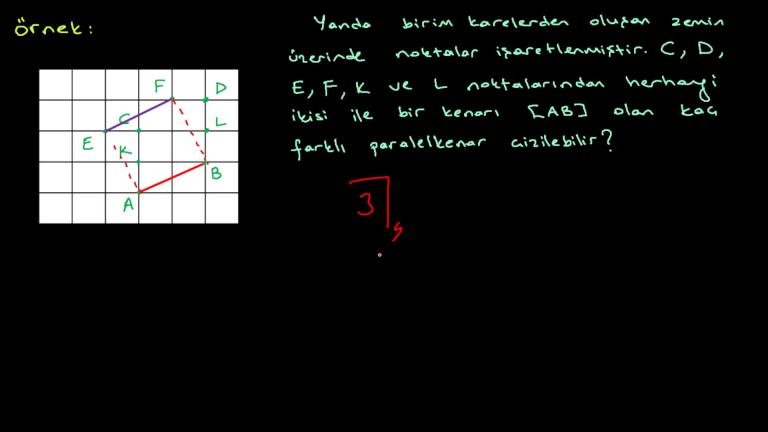 Örnek:
Yanda birim karelerden oluşan zemin
üzerinde noktalar işaretlenmiştir. C, D,
E, F, K ve L noktalarından herhangi
ikisi ile bir kenarı [AB] olan kaç
farklı paralelkenar çizilebilir?
F D
C L
E K
B
A
3